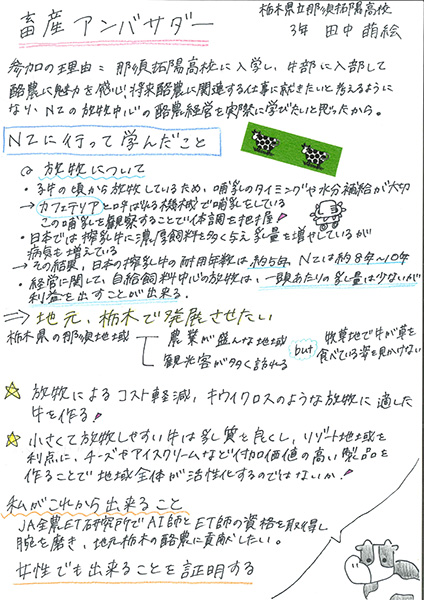 畜産アンバサダー
栃木県立那須拓陽高校
3年 田中 萌絵
参加の理由：那須拓陽高校に入学し、牛部に入部して
酪農に魅力を感じ、将来酪農に関連する仕事に就きたいと考えるように
なり、NZの放牧中心の酪農経営を実際に学びたいと思ったから。
NZに行って学んだこと
◎ 放牧について
・子牛の頃から放牧しているため、哺乳のタイミングや水分補給が大切
→ カフェテリアと呼ばれる機械で哺乳をしている
この哺乳を観察することで体調を把握！
・日本では搾乳牛に濃厚飼料を多く与え乳量を増やしているが
病気も増えている
→ その結果、日本の搾乳牛の耐用年数は約5年、NZは約8年〜10年
・経営に関して、自給飼料中心の放牧は、一頭あたりの乳量は少ないが
利益を出すことが出来る。
⇒ 地元、栃木で発展させたい
栃木県の那須地域
農業が盛んな地域
観光客が多く訪れる
but
牧草地で牛が草を
食べている姿を見かけない
☆ 放牧によるコスト軽減、キウイクロスのような放牧に適した
牛を作る！
☆ 小さくて放牧しやすい牛は乳質を良くし、リゾート地域を
利点に、チーズやアイスクリームなど付加価値の高い製品を
作ることで地域全体が活性化するのではないか！
私がこれから出来ること
JA全農ET研究所でAI師とET師の資格を取得し
腕を磨き、地元栃木の酪農に貢献したい。
女性でも出来ることを証明する